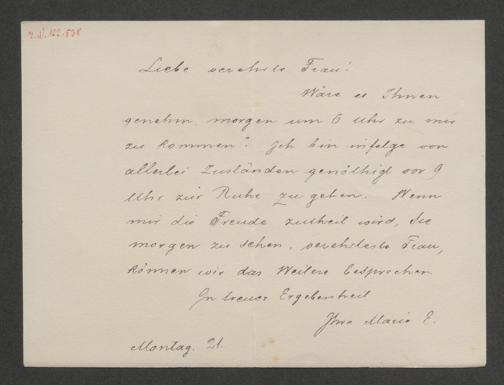 I.N. 122.538
Liebe verehrte Frau!
Wäre es Ihnen
genehm morgen um 6 Uhr zu mir
zu kommen? Ich bin infolge von
allerlei Zuständen genöthigt vor 9
Uhr zur Ruhe zu gehen. Wenn
mir die Freude zutheil wird, Sie
morgen zu sehen, verehrteste Frau,
können wir das Weitere besprechen
In treuer Ergebenheit
Ihre Marie E.
Montag. 21.